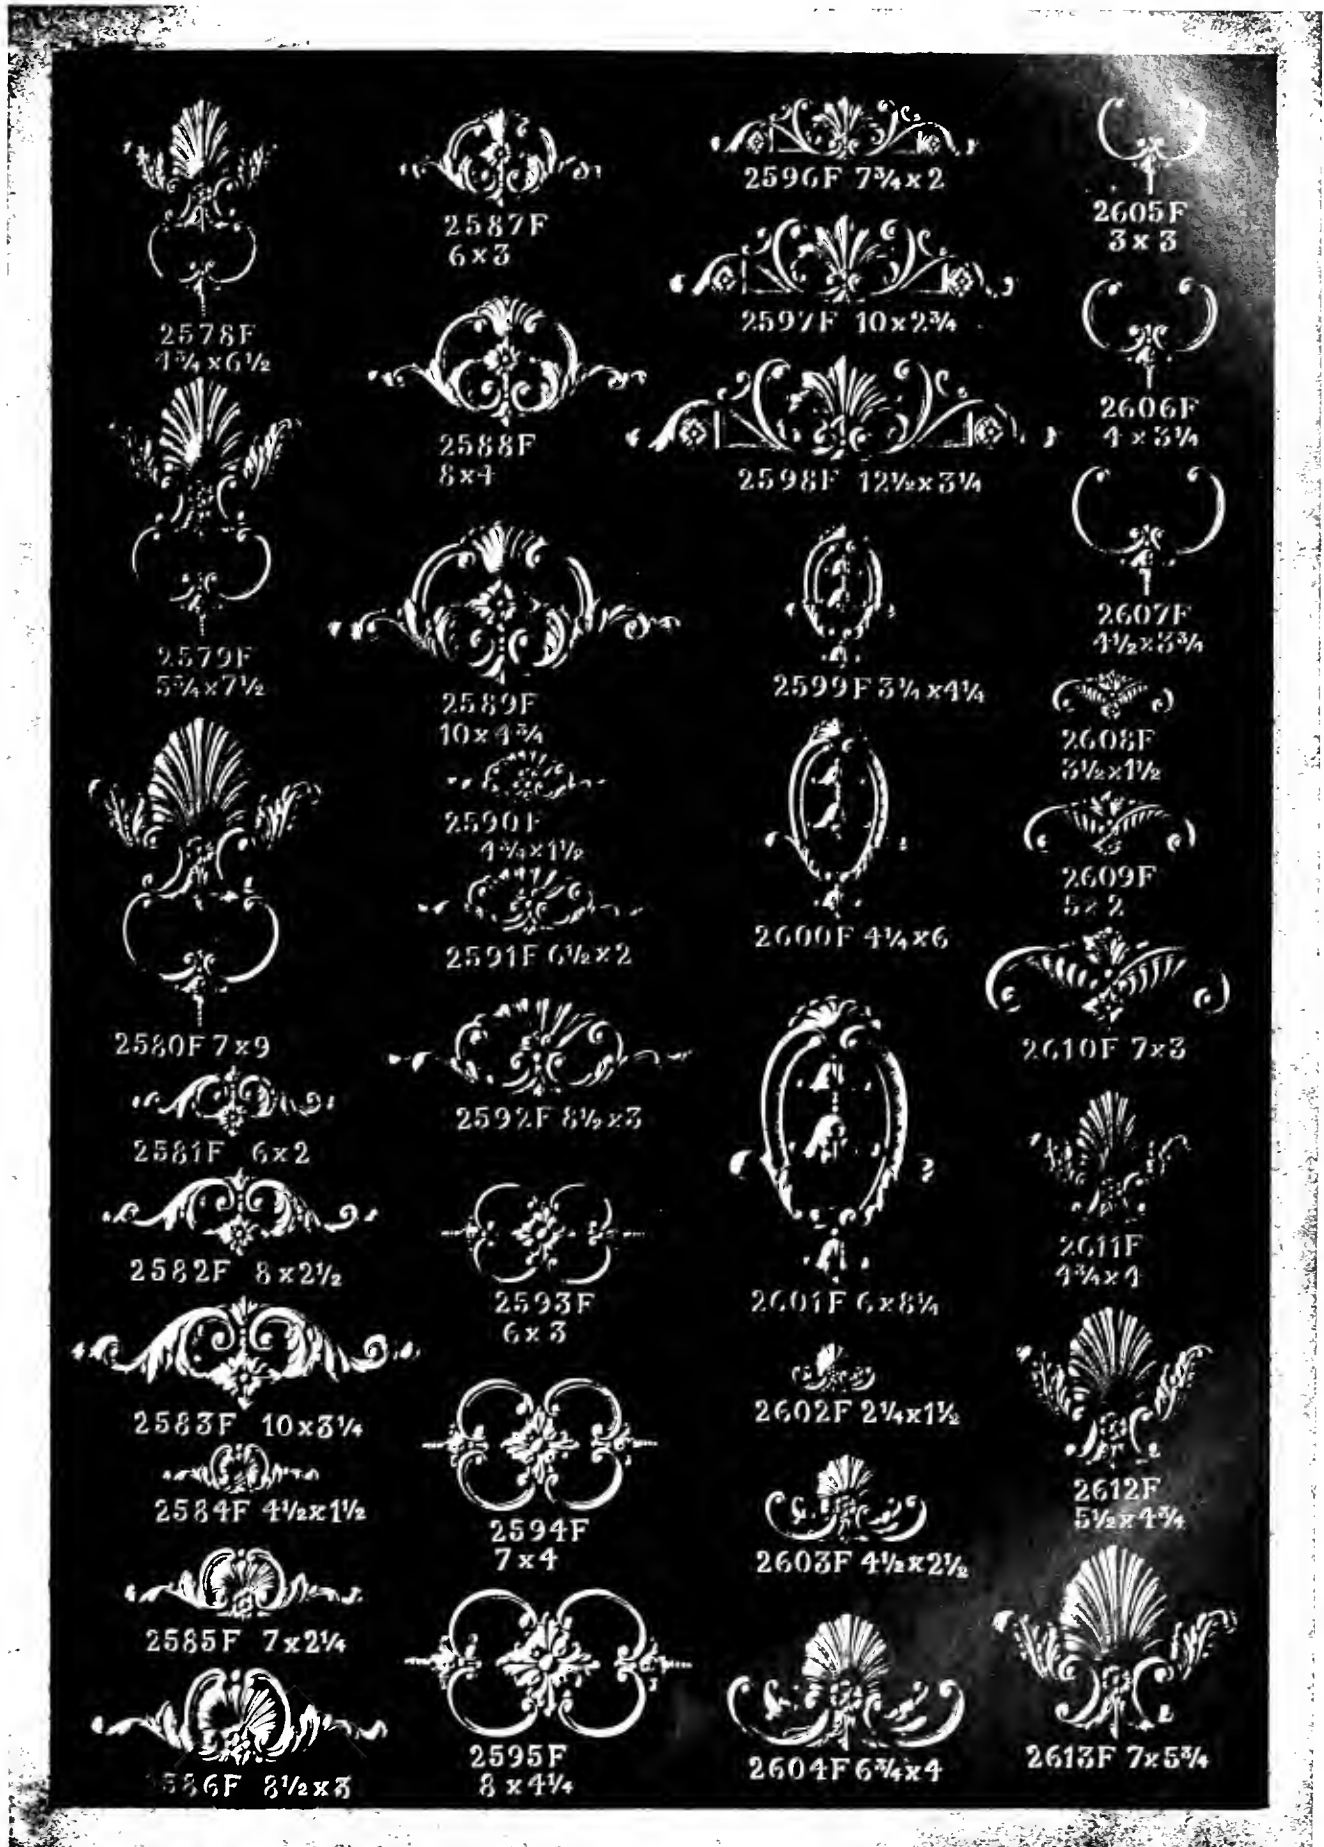 2578F
4¾x6½
2579F
5¾x7½
2580F 7x9
2581F 6x2
2582F 8x2½
2583F 10x3¼
2584F 4½x1½
2585F 7x2¼
2586F 8½x3
2587F
6x3
2588F
8x4
2589F
10x4¾
2590F
4¾x1½
2591F 6½x2
2592F 8½x3
2593F
6x3
2594F
7x4
2595F
8x4¼
2596F 7¾x2
2597F 10x2¾
2598F 12½x3¼
2599F 3¼x4¼
2600F 4¼x6
2601F 6x8¼
2602F 2¼x1½
2603F 4½x2½
2604F 6¾x4
2605F
3x3
2606F
4x3¼
2607F
4½x3¾
2608F
3½x1½
2609F
5x2
2610F 7x3
2611F
4¾x4
2612F
5½x4¾
2613F 7x5¾